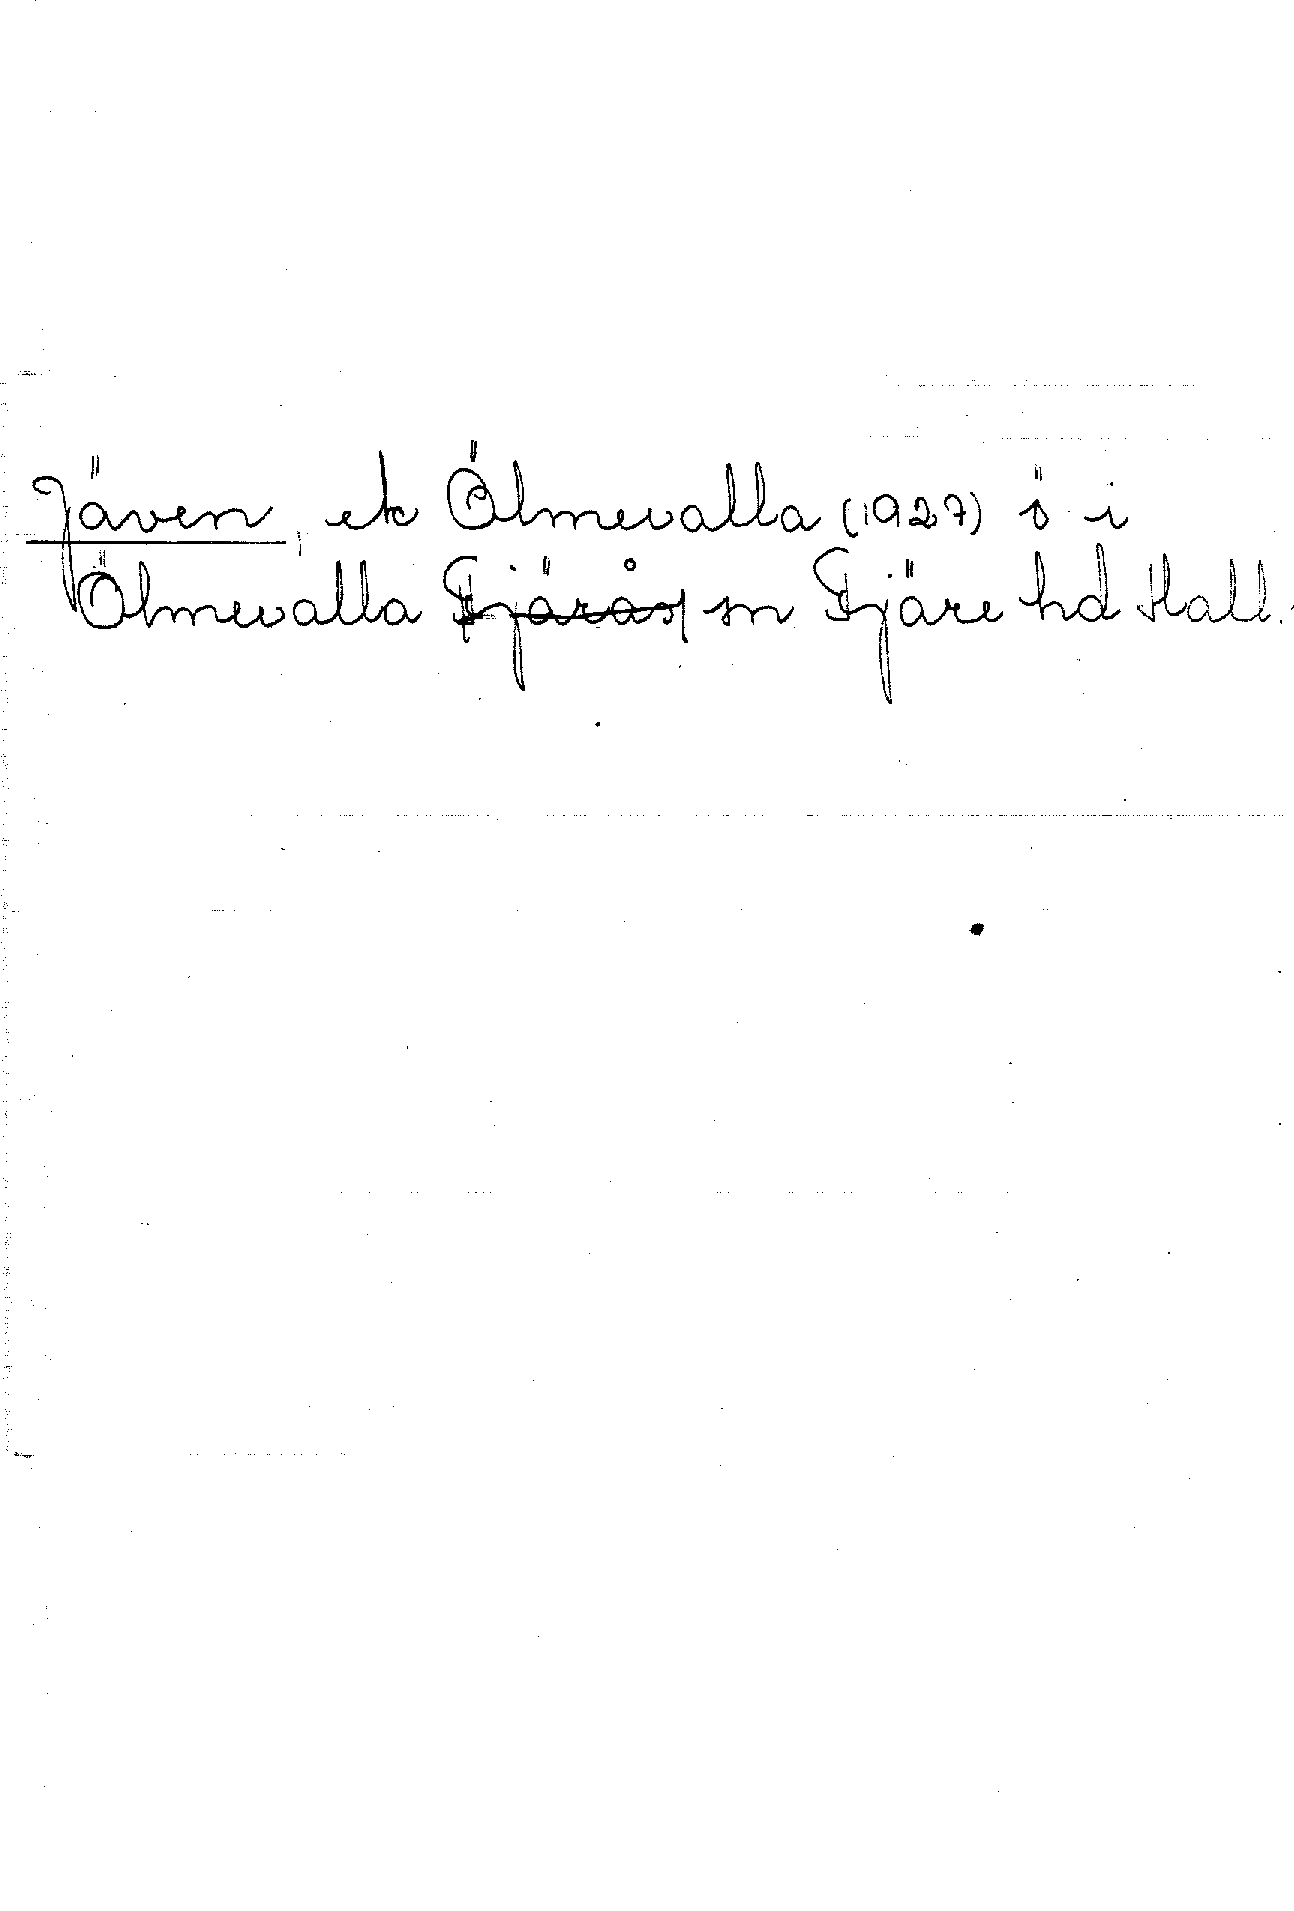 Jäven, ek Ölmevalla (1927) ö i
Ölmevalla Fjärås sn Fjäre hd Hall.